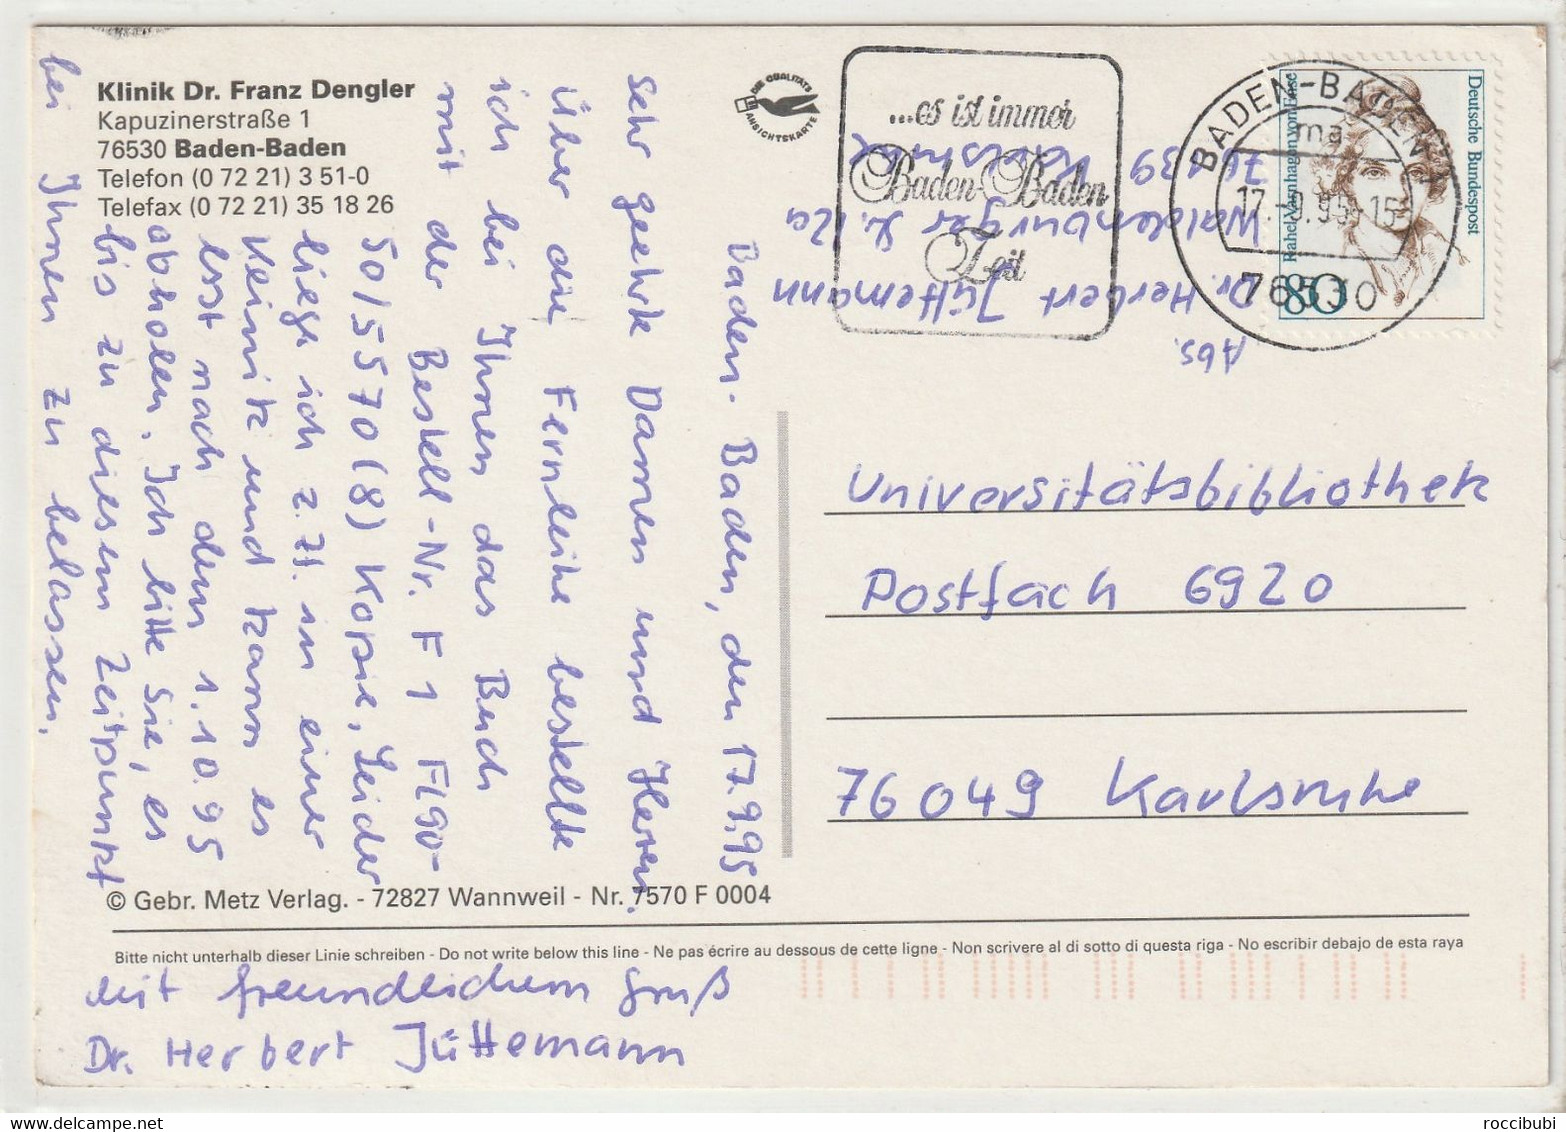 Klinik Dr. Franz Dengler
Kapuzinerstraße 1
76530 Baden-Baden
Telefon (0 72 21) 3 51-0
Telefax (0 72 21) 35 18 26
DIE QUALITÄTS
ANSICHTSKARTE
...es ist immer
Baden-Baden
Zeit
BADEN-BADEN 1
ma
17.-9.95-15
76530
Deutsche Bundespost
Rahel Varnhagen von Ense
80
Abs.
Dr. Herbert Jüttemann
Waldenburger Str. 12a
76139 Karlsruhe
Baden-Baden, den 17.9.95
Sehr geehrte Damen und Herren.
Über die Fernleihe bestellte
ich bei Ihnen das Buch
mit der Bestell-Nr. F1 F190-
50/5570(8) Kopie, Leider
liege ich z.Zt. in einer
Keinik und kann es
erst nach dem 1.10.95
abholen. Ich bitte Sie, es
bis zu diesem Zeitpunkt
bei Ihnen zu belassen.
Universitätsbibliothek
Postfach 6920
76049 Karlsruhe
© Gebr. Metz Verlag. - 72827 Wannweil - Nr. 7570 F 0004
Bitte nicht unterhalb dieser Linie schreiben - Do not write below this line - Ne pas écrire au dessous de cette ligne - Non scrivere al di sotto di questa riga - No escribir debajo de esta raya
Mit freundlichem Gruß
Dr. Herbert Jüttemann
roccibubi